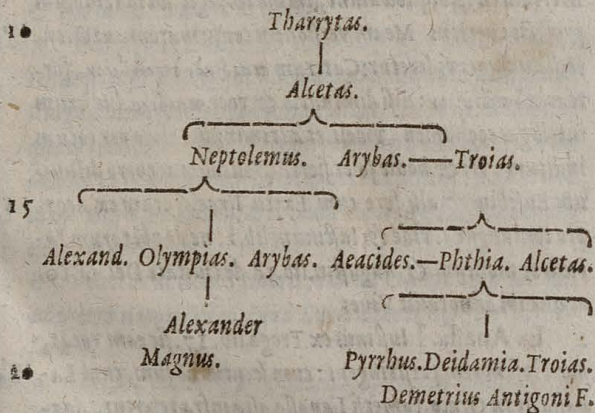 10 Tharrytas.
Alcetas.
Neptolemus. Arybas.—Troias.
15
Alexand. Olympias. Arybas. Aeacides.—Phthia. Alcetas.
Alexander
Magnus. Pyrrhus.Deidamia.Troias.
20 Demetrius Antigoni F.